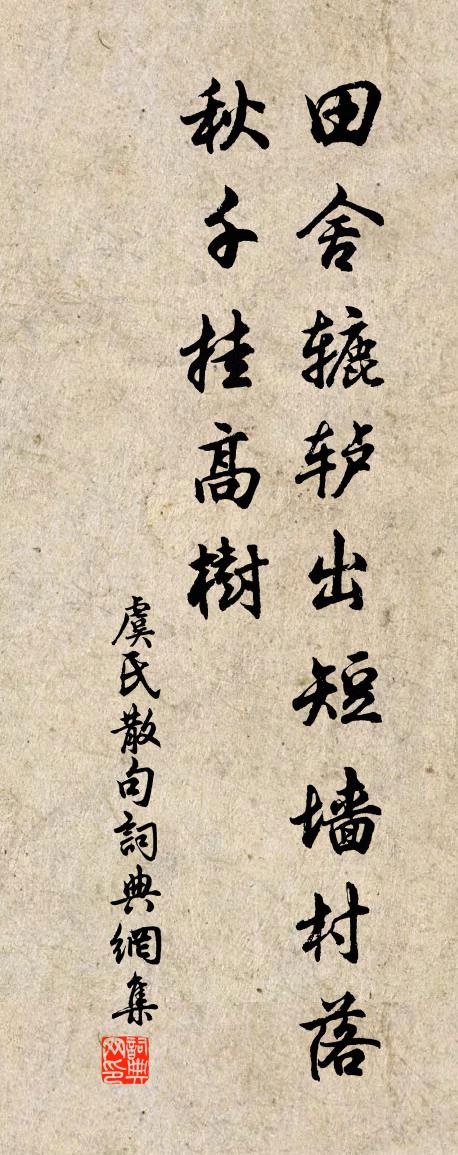 田舍辘轳出短墙村落
秋千挂高樹
虞氏散句詞典網集
詞典网印